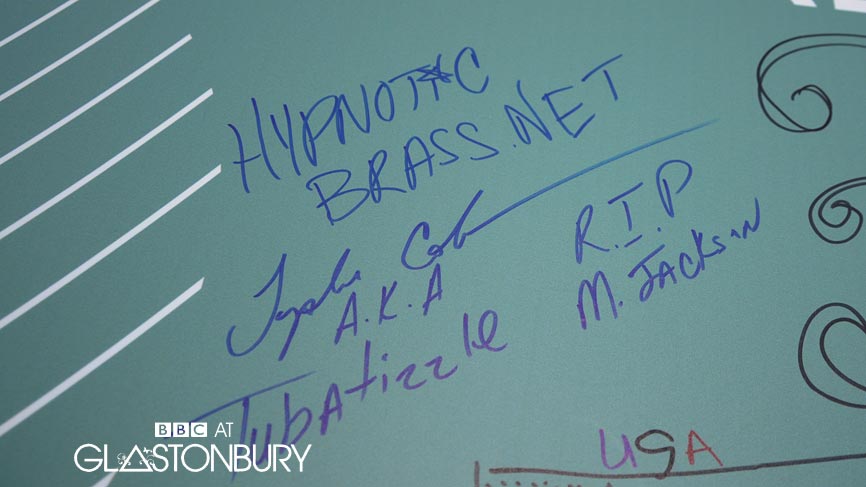 HYPNOTIC
BRASS.NET
R.I.P
M. JACKSON
A.K.A
TubAtizzle
USA
BBC AT
GLASTONBURY